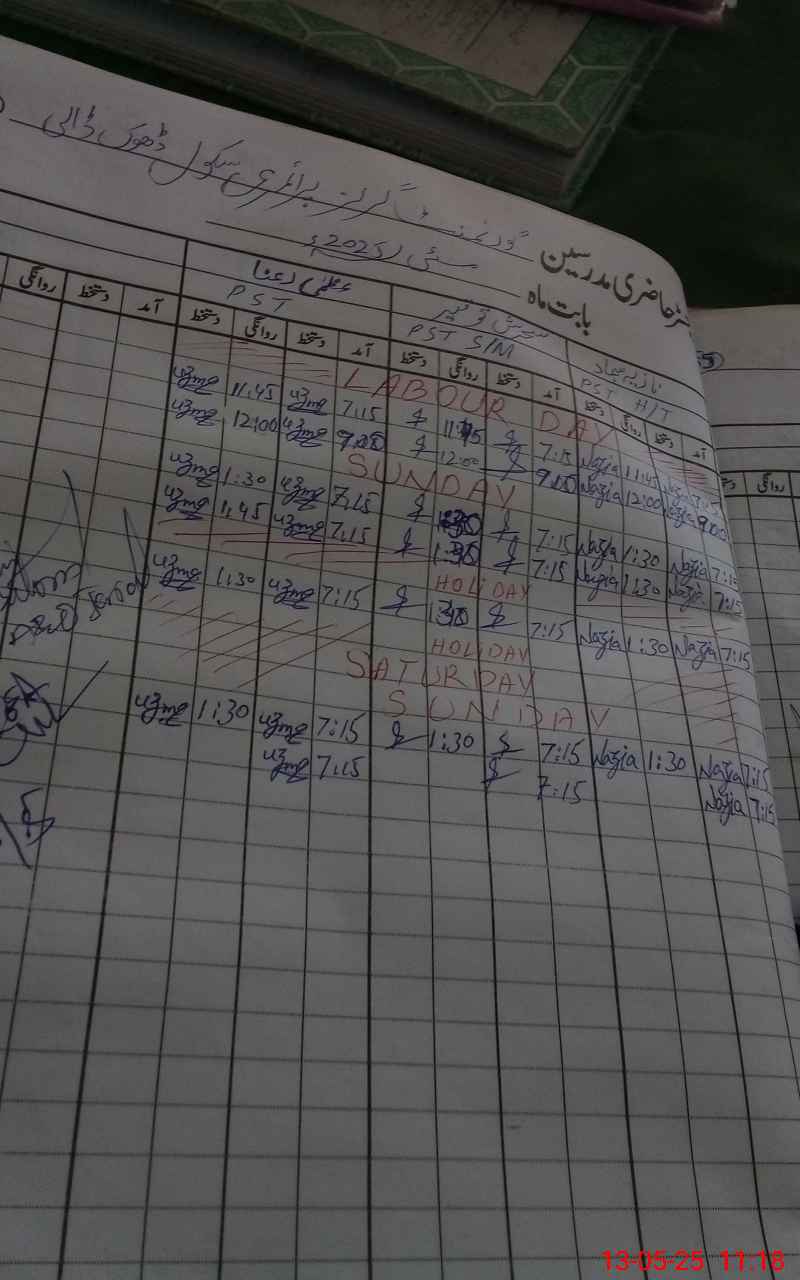 گورنمنٹ گرلز پرائمری سکول ڈھوک ڈالی
رجسٹر حاضری مدرسین
بابت ماہ مئی 2025ء
نازیہ سجاد
PST H/T
PST S/M
عظمیٰ رعنا
PST
آمد دستخط روانگی دستخط آمد دستخط روانگی دستخط آمد دستخط روانگی دستخط آمد دستخط روانگی
LABOUR DAY
7:15 Nazia 11:45 Nazia 7:15 11:45 7:15 uzma 11:45 uzma
9:00 Nazia 12:00 Nazia 9:00 12:00 9:00 uzma 12:00 uzma
SUNDAY
7:15 Nazia 1:30 Nazia 7:15 1:30 7:15 uzma 1:30 uzma
7:15 Nazia 1:30 Nazia 7:15 1:30 7:15 uzma 1:45 uzma
HOLIDAY
7:15 Nazia 1:30 Nazia 7:15 1:30 7:15 uzma 1:30 uzma
HOLIDAY
SATURDAY
SUNDAY
7:15 Nazia 1:30 Nazia 7:15 1:30 7:15 uzma 1:30 uzma
7:15 Nazia 7:15 7:15 uzma
روانگی
13-05-25 11:18